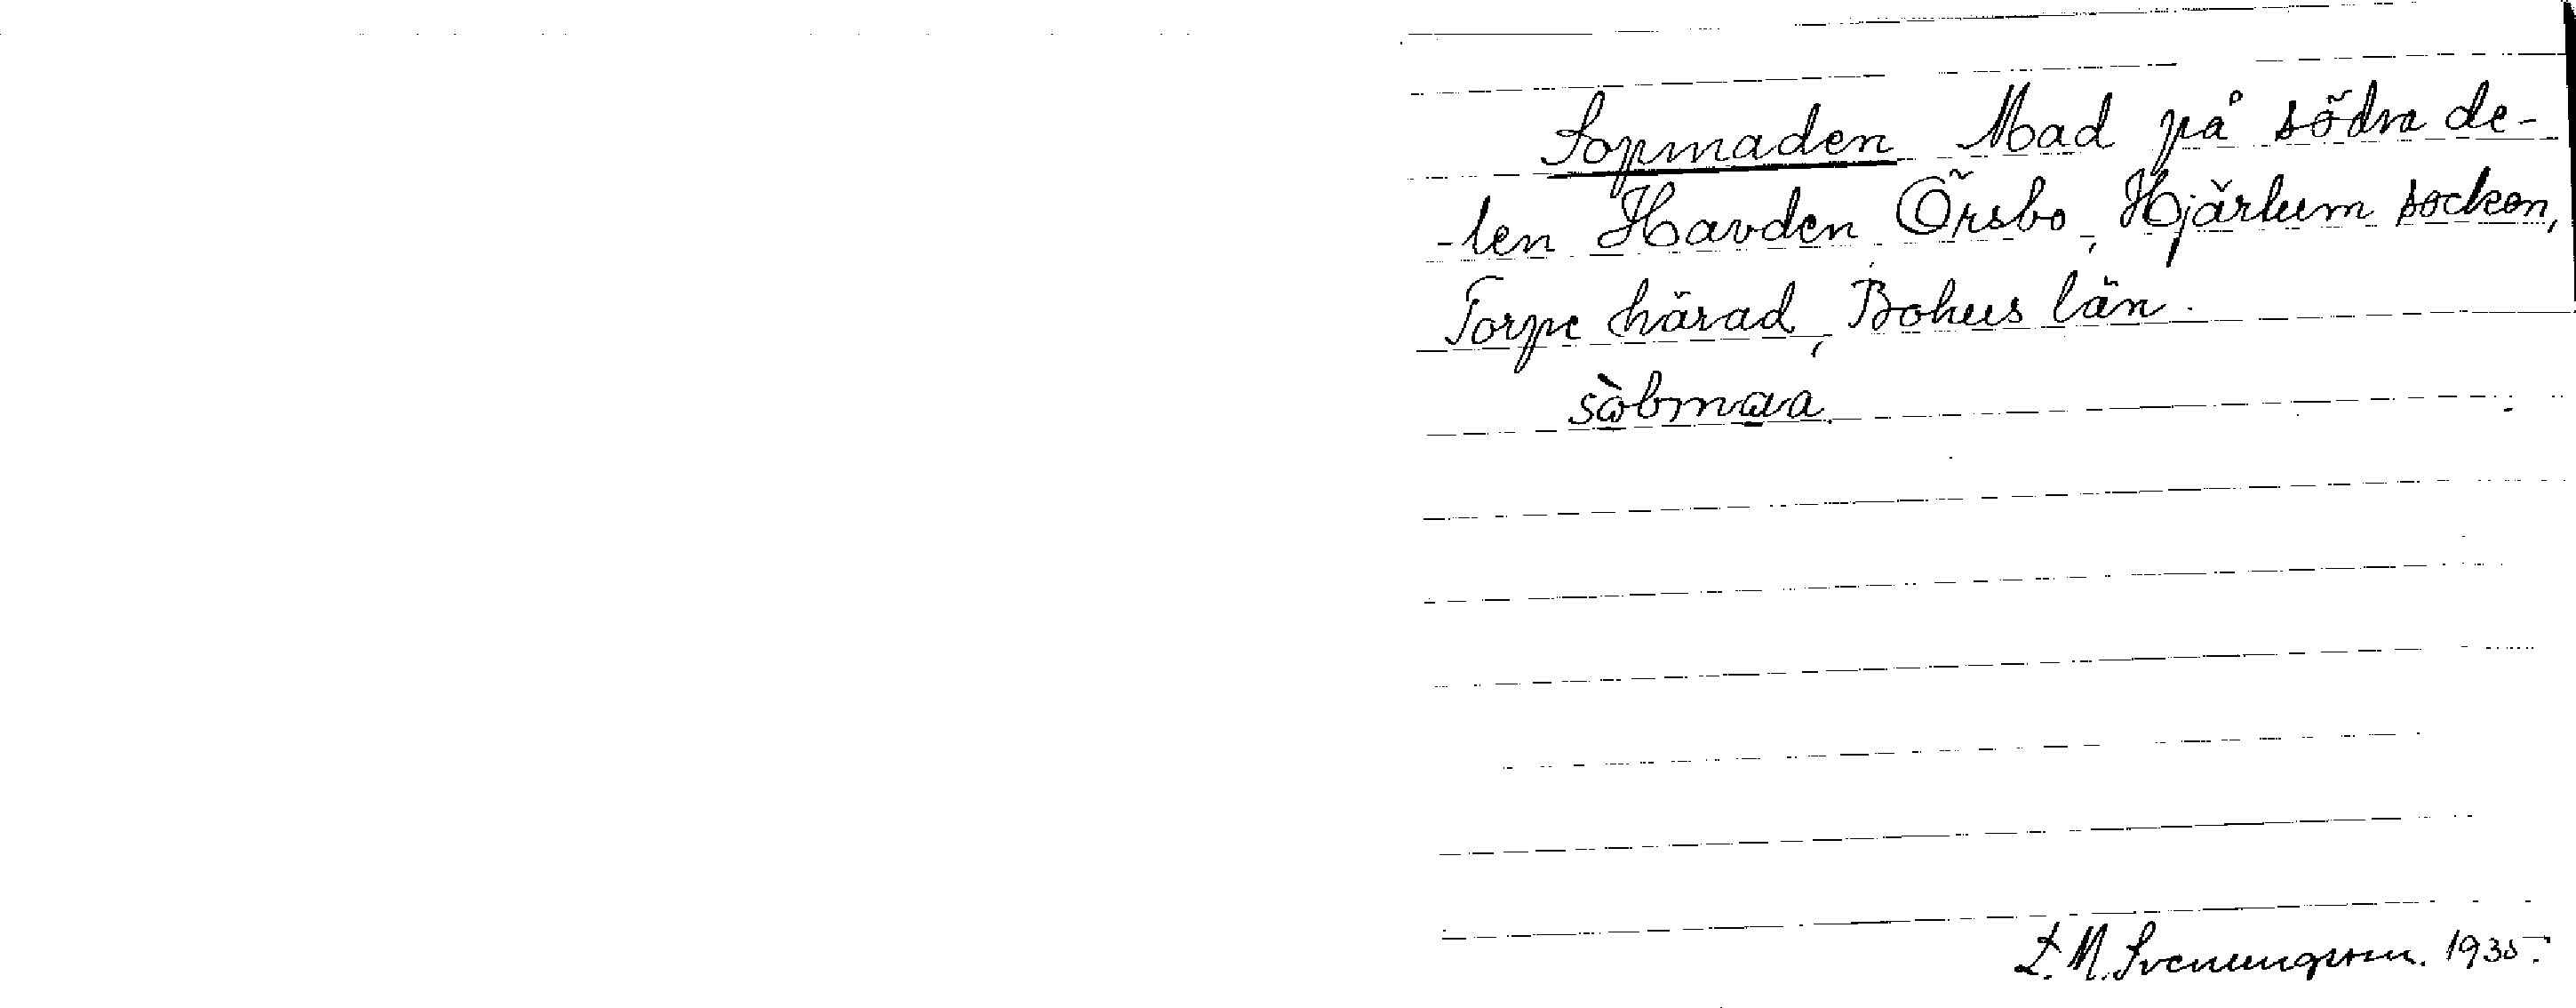 Sopmaden Mad på södra de-
-len Havden Örsbo, Hjärtum socken,
Torpe härad, Bohus län.
sòbmaa.
L. M. Svenungsson. 1935.